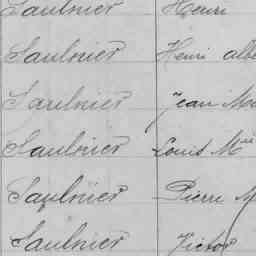 Saulnier Henri
Saulnier Henri albe
Saulnier Jean Ma
Saulnier Louis Mie
Saulnier Pierre M
Saulnier Victor